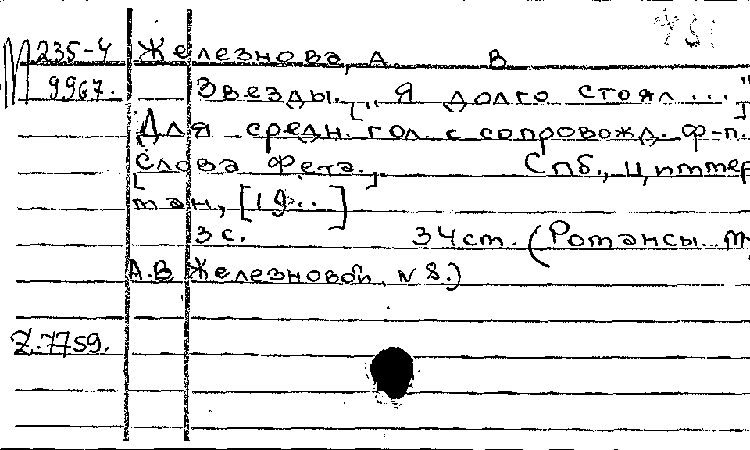 М 235-4 Железнова, А. В
9967. Звезды. [„Я долго стоял..."]
Для средн. гол. с сопровожд. ф-п.
[Слова Фета.] Спб., Циммер
ман, [19..]
3 с. 34 см. (Романсы
А.В Железновой, N 8.)
Z.7759.